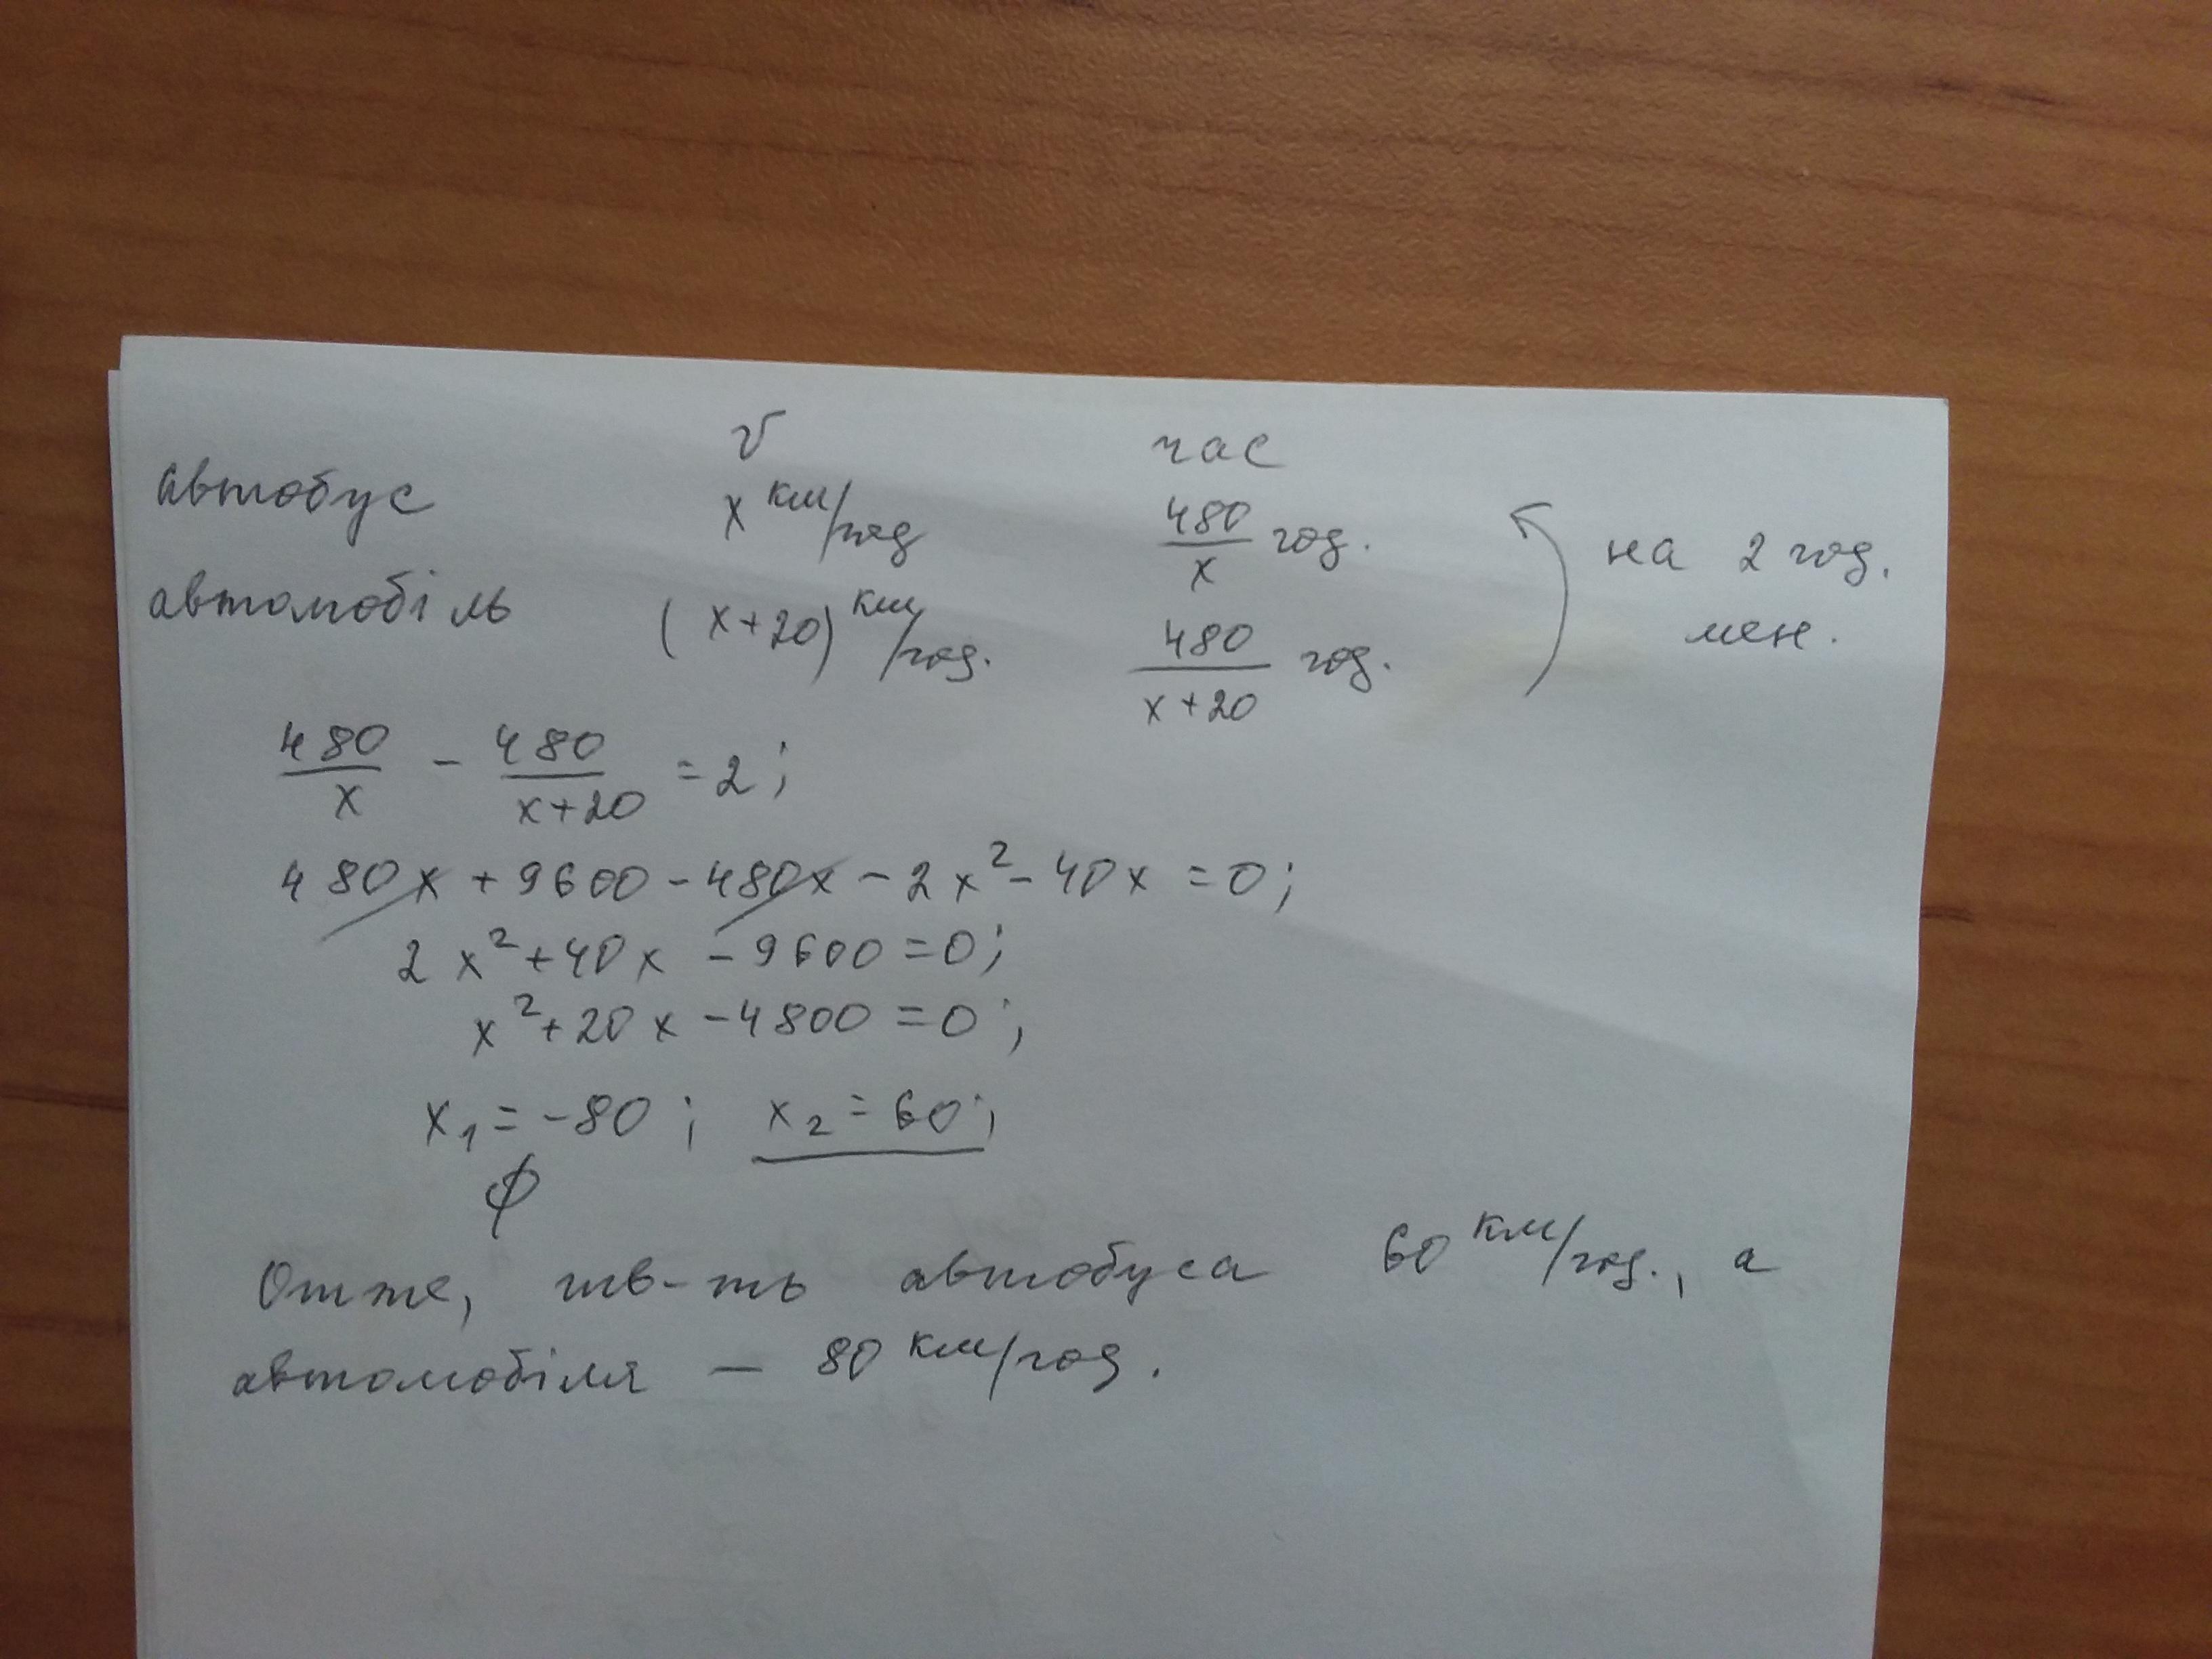 v час
автобус x км/год 480/x год. на 2 год.
автомобіль (x+20) км/год. 480/x+20 год. мен.
480/x - 480/x+20 = 2;
480x + 9600 - 480x - 2x² - 40x = 0;
2x² + 40x - 9600 = 0;
x² + 20x - 4800 = 0;
x₁ = -80; x₂ = 60;
∅
Отже, шв-ть автобуса 60 км/год., а
автомобіля — 80 км/год.